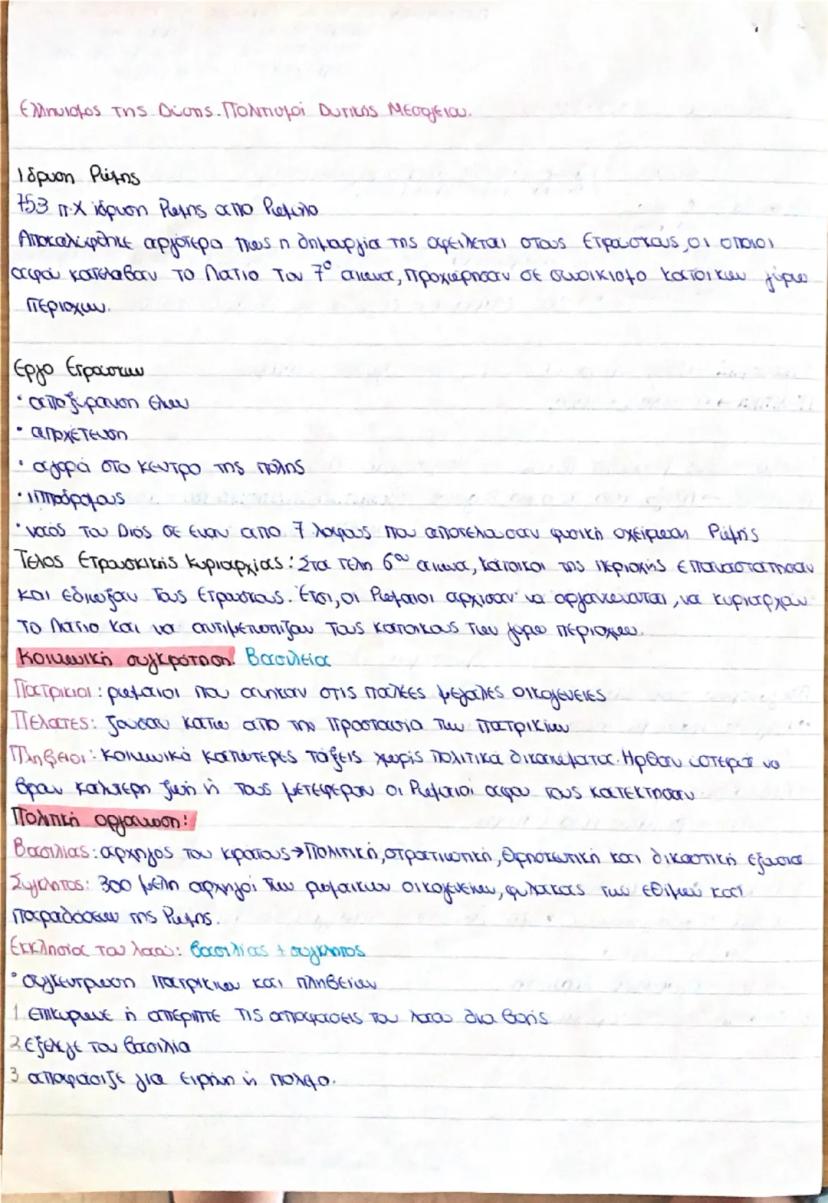 Ελληνισμος της Δύσης. Πολιτισμοί Δυτικής Μεσογείου.
Ίδρυση Ρώμης
753 π.Χ ίδρυση Ρώμης από Ρωμύλο
Αποκαλύφθηκε αργότερα πως η δημιουργία της οφείλεται στους Ετρούσκους, οι οποίοι
αφού κατέλαβαν το Λάτιο τον 7ο αιώνα, προχώρησαν σε συνοικισμό κατοίκων γύρω
περιοχών.
Εργο Ετρούσκων
• αποξήρανση ελών
• αποχέτευση
• αγορά στο κέντρο της πόλης
• ιππόδρομους
• ναός του Διός σε έναν από 7 λόφους που αποτελούσαν φυσική οχύρωση Ρώμης
Τέλος Ετρουσκικής Κυριαρχίας: Στα τέλη 6ου αιώνα, κάτοικοι της περιοχής επαναστάτησαν
και έδιωξαν τους Ετρούσκους. Έτσι, οι Ρωμαίοι άρχισαν να οργανώνονται, να κυριαρχούν
το Λάτιο και να αντιμετωπίζουν τους κατοίκους των γύρω περιοχών.
Κοινωνική συγκρότηση: Βασιλεία
Πατρίκιοι: ρωμαίοι που ανήκαν στις παλιές μεγάλες οικογένειες
Πελάτες: ζούσαν κάτω από την προστασία των πατρικίων
Πληβείοι: κοινωνικά κατώτερες τάξεις χωρίς πολιτικά δικαιώματα. Ήρθαν ύστερα να
βρουν καλύτερη ζωή ή τους μετέφεραν οι Ρωμαίοι αφού τους κατέκτησαν
Πολιτική οργάνωση:
Βασιλιάς: αρχηγός του κράτους → Πολιτική, στρατιωτική, θρησκευτική και δικαστική εξουσία
Σύγκλητος: 300 μέλη αρχηγοί των ρωμαικών οικογενειών, φύλακας των εθίμων και
παραδόσεων της Ρώμης.
Εκκλησία του λαού: βασιλιάς + σύγκλητος
• συγκέντρωση πατρικίων και πληβείων
1 επικύρωνε ή απέριπτε τις αποφάσεις του λαού δια βοής
2 εξέλεγε τον βασιλιά
3 αποφάσιζε για ειρήνη ή πόλεμο.